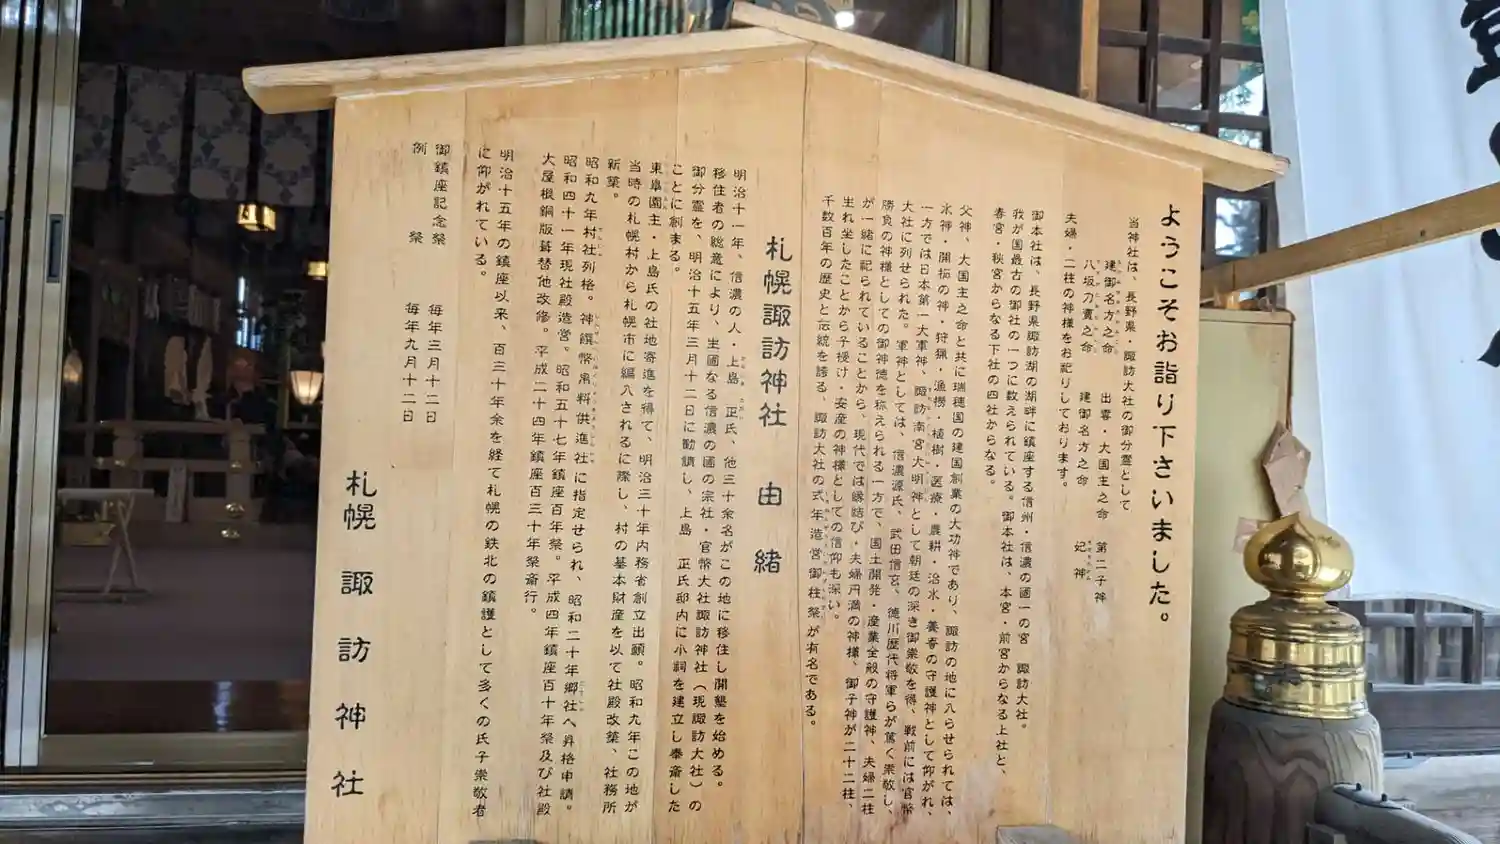 ようこそお詣り下さいました。
当神社は、長野県・諏訪大社の御分霊として
建御名方之命 出雲・大国主之命 第二子神
八坂刀賣之命 建御名方之命 妃神
夫婦・二柱の神様をお祀りしております。
御本社は、長野県諏訪湖の湖畔に鎮座する信州・信濃の國一の宮 諏訪大社。
我が国最古の御社の一つに数えられている。御本社は、本宮・前宮からなる上社と、
春宮・秋宮からなる下社の四社からなる。
父神、大国主之命と共に瑞穂国の建国創業の大功神であり、諏訪の地に入らせられては、
水神・開拓の神・狩猟・漁撈・植樹・医療・農耕・治水・養蚕の守護神として仰がれ、
一方では日本第一大軍神、諏訪南宮大明神として朝廷の深き御崇敬を得、戦前には官幣
大社に列せられた。軍神としては、信濃源氏、武田信玄、徳川歴代将軍らが篤く崇敬し、
勝負の神様としての御神徳を称えられる一方で、国土開発・産業全般の守護神、夫婦二柱
が一緒に祀られていることから、現代では縁結び・夫婦円満の神様、御子神が二十二柱、
生れ坐したことから子授け・安産の神様としての信仰も深い。
千数百年の歴史と伝統を誇る、諏訪大社の式年造営御柱祭が有名である。
札幌諏訪神社 由緒
明治十一年、信濃の人・上島 正氏、他三十余名がこの地に移住し開墾を始める。
移住者の総意により、生國なる信濃の國の宗社・官幣大社諏訪神社（現諏訪大社）の
御分霊を、明治十五年三月十二日に勧請し、上島 正氏邸内に小祠を建立し奉斎した
ことに創まる。
東皐園主・上島氏の社地寄進を得て、明治三十年内務省創立出願。昭和九年この地が
当時の札幌村から札幌市に編入されるに際し、村の基本財産を以て社殿改築、社務所
新築。
昭和九年村社列格。神饌幣帛料供進社に指定せられ、昭和二十年郷社へ昇格申請。
昭和四十一年現社殿造営。昭和五十七年鎮座百年祭。平成四年鎮座百十年祭及び社殿
大屋根銅版葺替他改修。平成二十四年鎮座百三十年祭斎行。
明治十五年の鎮座以来、百三十年余を経て札幌の鉄北の鎮護として多くの氏子崇敬者
に仰がれている。
御鎮座記念祭 毎年三月十二日
例祭 毎年九月十二日
札幌諏訪神社